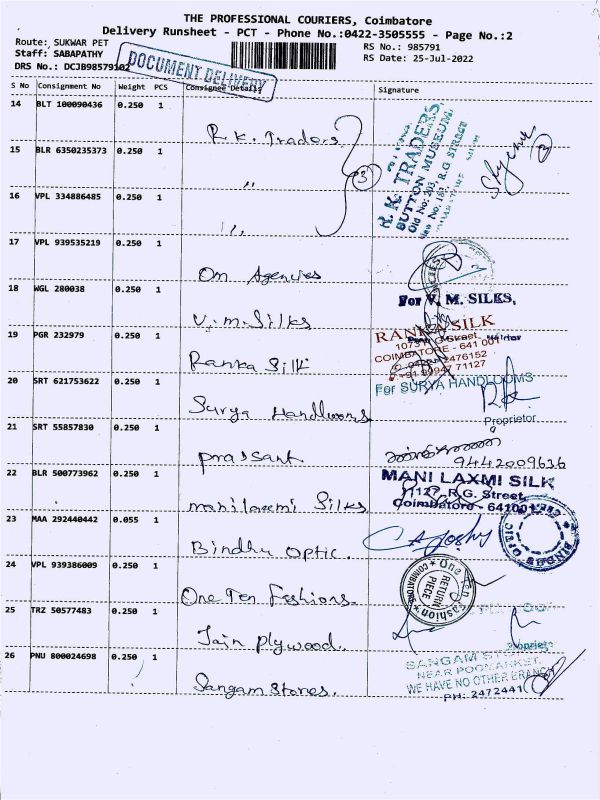 THE PROFESSIONAL COURIERS, Coimbatore
Delivery Runsheet - PCT - Phone No.:0422-3505555 - Page No.:2
Route: SUKWAR PET
RS No.: 985791
Staff: SABAPATHY
RS Date: 25-Jul-2022
DRS No.: DCJB98579102
DOCUMENT DELIVERY
S No Consignment No Weight PCS Consignee Details Signature
14 BLT 100090436 0.250 1
R.K. Traders
15 BLR 6350235373 0.250 1
"
3
16 VPL 334886485 0.250 1
"
R.K. TRADERS
BUTTON MUSEUM
Old No: 203 R.G. STREET
17 VPL 939535219 0.250 1
Om Agencies
18 WGL 280038 0.250 1
V.M. Silks
For V. M. SILKS,
19 PGR 232979 0.250 1
Ranka Silk
RANKA SILK
COIMBATORE - 641 001
20 SRT 621753622 0.250 1
Surya Handlooms
For SURYA HANDLOOMS
Proprietor
21 SRT 55857830 0.250 1
prasant
9442009636
22 BLR 500773962 0.250 1
manilaxmi Silks
MANI LAXMI SILK
R.G. Street
Coimbatore - 641001
23 MAA 292440442 0.055 1
Bindhu Optic.
24 VPL 939386009 0.250 1
One Ten Fashions.
One Ten Fashion
RETURN PIECE
COIMBATORE
25 TRZ 50577483 0.250 1
Jain Plywood.
26 PNU 800024698 0.250 1
Sangam Stores.
SANGAM
NEAR POOMARKET,
WE HAVE NO OTHER BRANCH
PH: 2472441